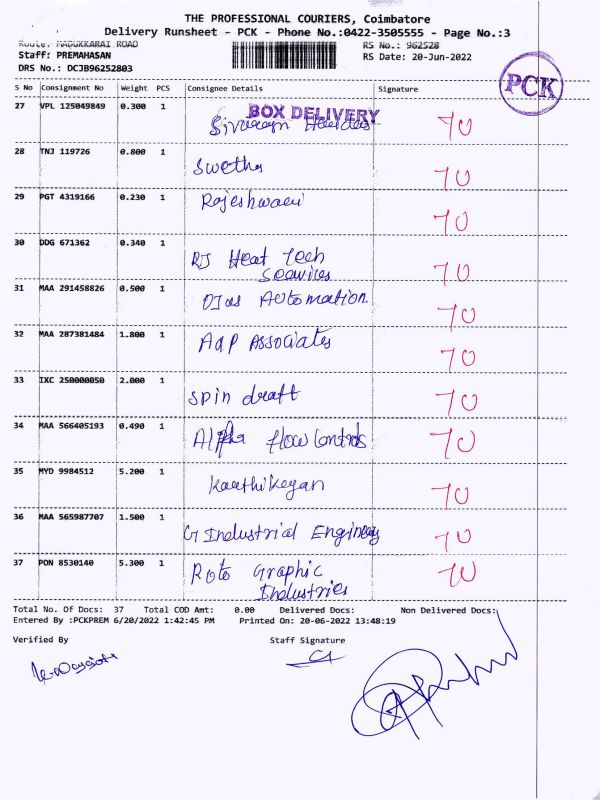 THE PROFESSIONAL COURIERS, Coimbatore
Delivery Runsheet - PCK - Phone No.:0422-3505555 - Page No.:3
Route: MADUKKARAI ROAD RS No.: 962528
Staff: PREMAHASAN RS Date: 20-Jun-2022
DRS No.: DCJB96252803
PCK
S No Consignment No Weight PCS Consignee Details Signature
BOX DELIVERY
27 VPL 125049849 0.300 1 70
28 TNJ 119726 0.800 1 Swetha 70
29 PGT 4319166 0.230 1 Rajeshwari 70
30 DDG 671362 0.340 1 RJ Heat Tech
Seavices 70
31 MAA 291458826 0.500 1 Ojas Automation. 70
32 MAA 287381484 1.800 1 Associates 70
33 IXC 250000050 2.000 1 Spin draft 70
34 MAA 566405193 0.490 1 Alpha flow Controls 70
35 MYD 9984512 5.200 1 Kaathikeyan 70
36 MAA 565987707 1.500 1 G Industrial 70
37 PON 8530140 5.300 1 Roto Graphic
Industries 70
Total No. Of Docs: 37 Total COD Amt: 0.00 Delivered Docs: Non Delivered Docs:
Entered By :PCKPREM 6/20/2022 1:42:45 PM Printed On: 20-06-2022 13:48:19
Verified By Staff Signature